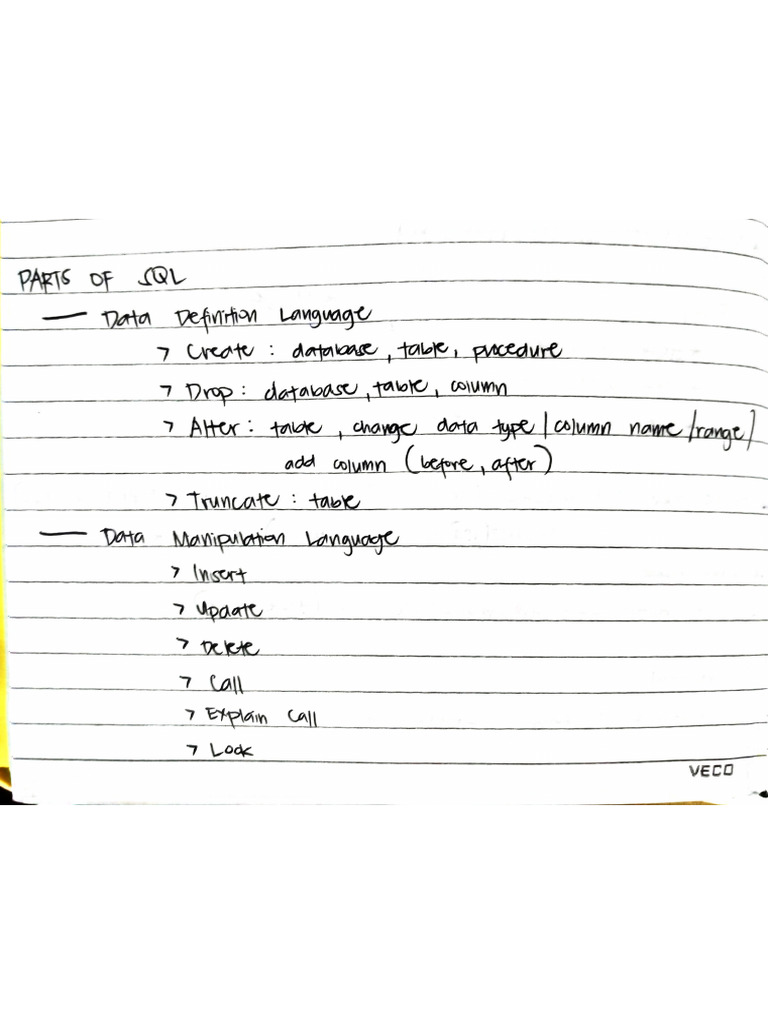 PARTS OF SQL
— Data Definition Language
> Create : database, table, procedure
> Drop : database, table, column
> Alter : table, change data type / column name / range /
add column (before, after)
> Truncate : table
— Data Manipulation Language
> Insert
> Update
> Delete
> Call
> Explain Call
> Lock
VECO